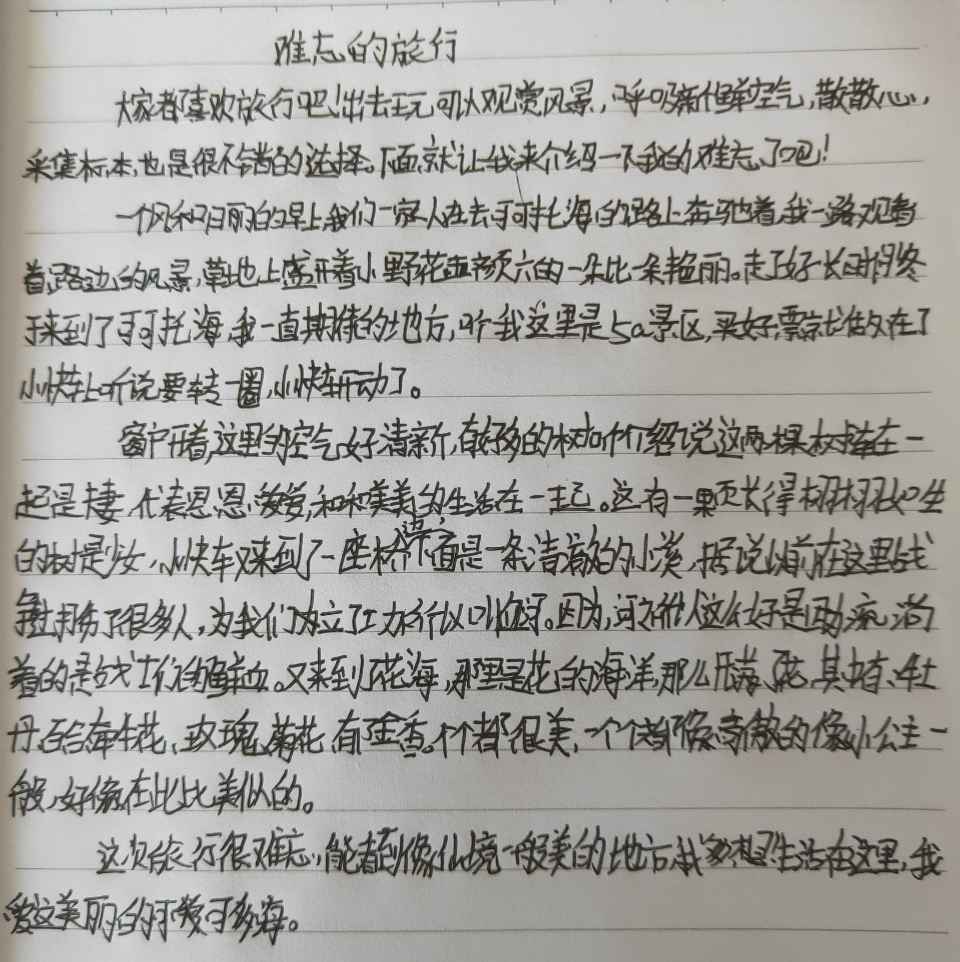 难忘的旅行
大家都喜欢旅行吧!出去玩可以观赏风景,呼吸新鲜空气,散散心,
采集标本,也是很不错的选择。下面,就让我来介绍一下我的难忘了吧!
一个风和日丽的早上,我们一家人在去可可托海的路上奔驰着,我一路观看
着路边的风景,草地上盛开着小野花五颜六的一朵比一朵艳丽。走了好长时间终
于来到了可可托海,我一直期待的地方,这里是5a景区,买好票就坐在了
小快车上听说要转一圈,小快车开动了。
窗户开着,这里的空气好清新,有好多的树叶介绍说这两棵树挨在一
起是夫妻,代表恩恩爱爱,和和美美的生活在一起。这有一颗长得栩栩如生
的树是少女,小快车又来到了一座桥边,下面是一条清澈的小溪,据说以前在这里战
争打伤了很多人,为我们立了功。因为,河流
着的是战士们的鲜血。又来到了花海,那里是花的海洋,那么,其中有、牡
丹、牵牛花、玫瑰、菊花、郁金香。个个都很美,一个个都像高傲的像小公主一
般,好像在比比美似的。
这次旅行很难忘,能看到像仙境一般美的地方,我多想生活在这里,我
爱这美丽的可可海。